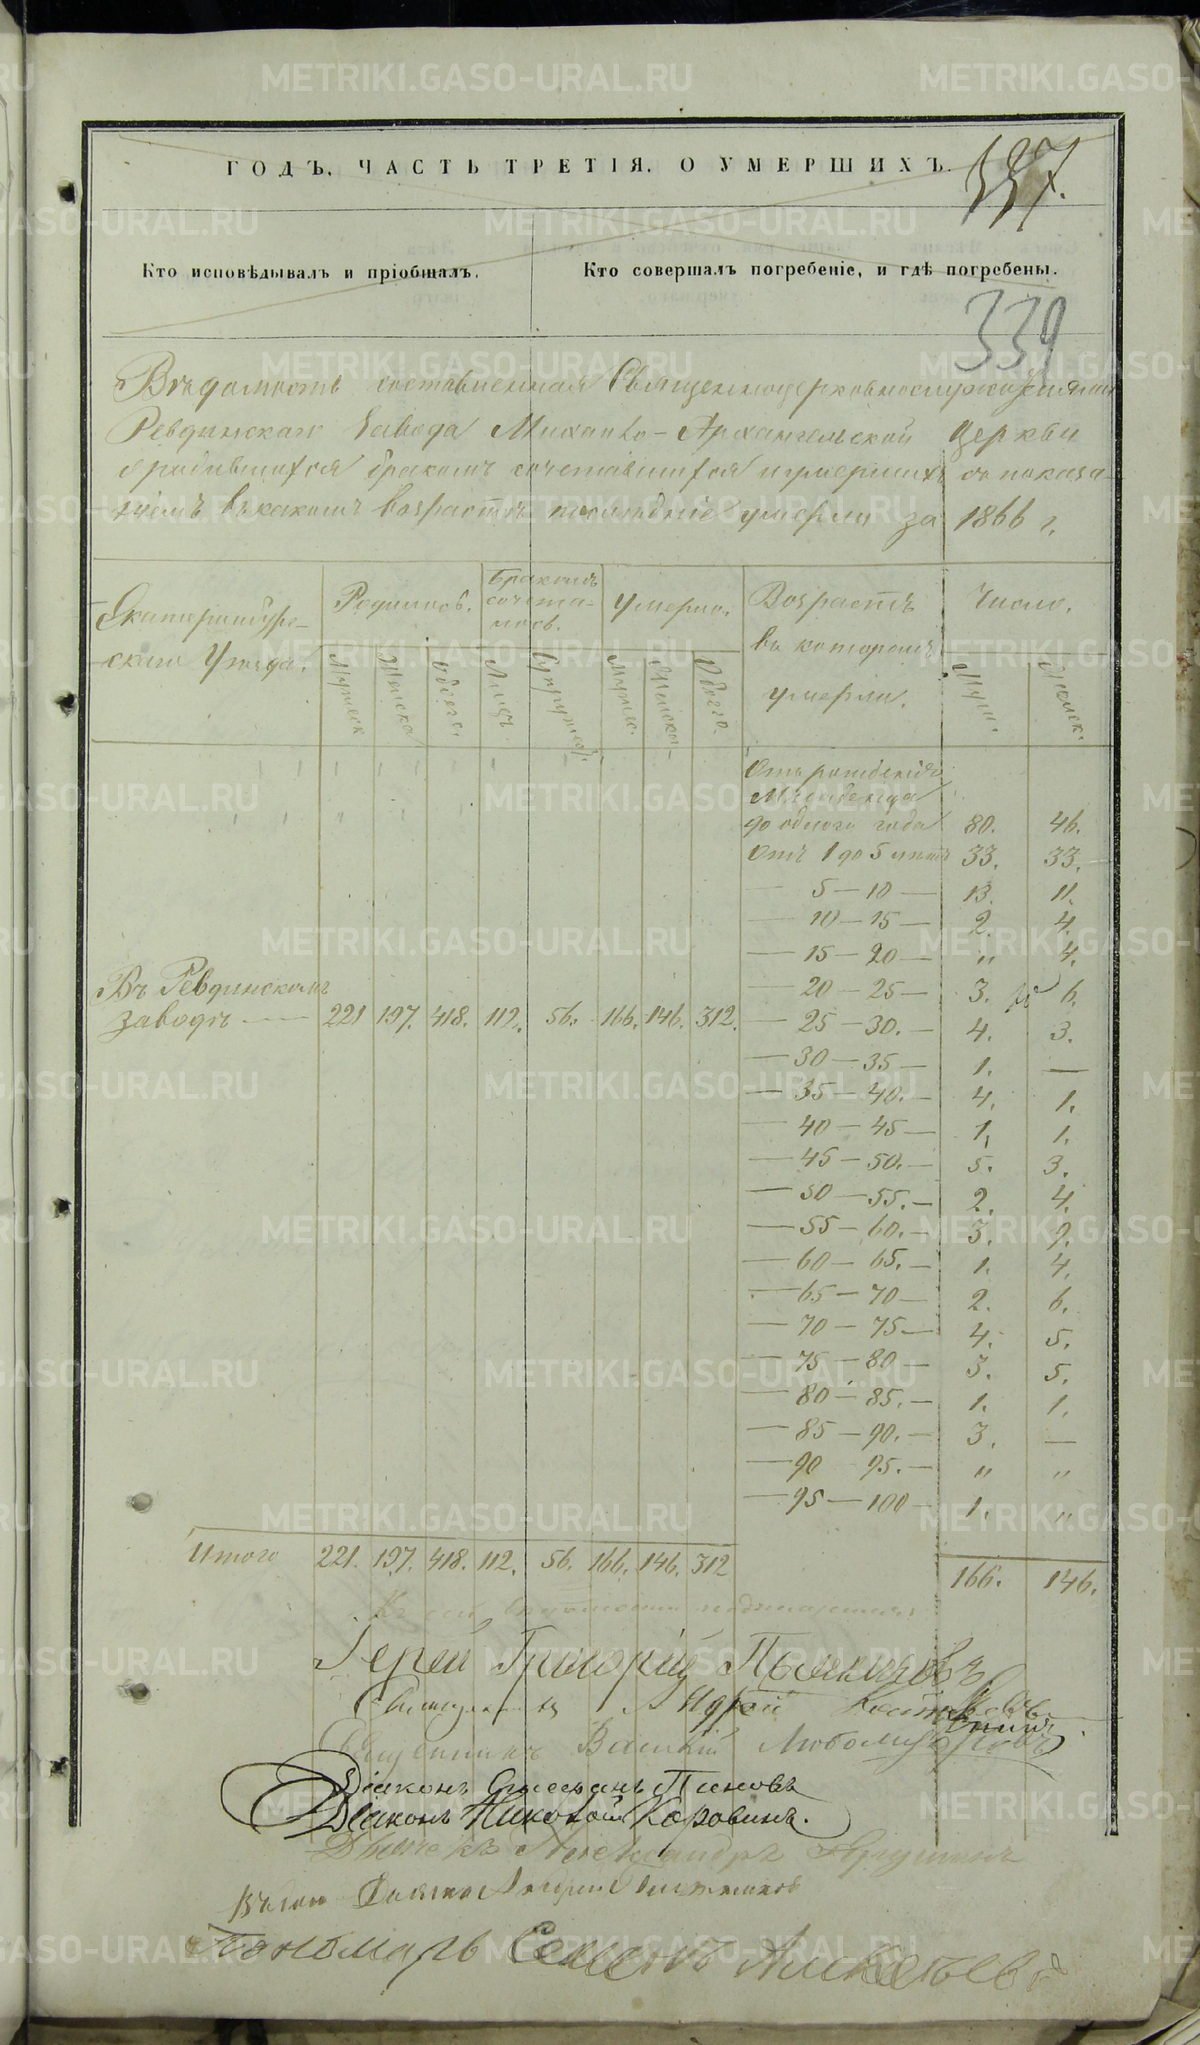 ГОДЪ. ЧАСТЬ ТРЕТІЯ. О УМЕРШИХЪ.
337.
Кто исповѣдывалъ и пріобщалъ.
Кто совершалъ погребеніе, и гдѣ погребены.
339
Вѣдомость составленная Священноцерковнослужителями
Ревдинскаго Завода Михаило-Архангельской Церкви
о родившихся бракомъ сочетавшихся и умершихъ съ показа-
ніемъ въ какомъ возрастѣ послѣдніе умерли за 1866 г.
Екатеринбург-
скаго Уѣзда.
Родилось.
Бракомъ
сочета-
лось.
Умерло.
Возрастъ
въ которомъ
умерли.
Число.
Мужеск
Женска
Обоего
Лицъ.
Супружес.
Мужес.
Женска
Обоего.
Муж.
Женск.
Отъ рожденія
Младенца
до одного года 80. 46.
Отъ 1 до 5 лѣтъ 33. 33.
— 5 — 10 — 13. 11.
— 10 — 15 — 2. 4.
— 15 — 20 — " 4.
— 20 — 25 — 3. 6.
— 25 — 30. — 4. 3.
— 30 — 35 — 1. —
— 35 — 40. — 4. 1.
— 40 — 45 — 1, 1.
— 45 — 50. — 5. 3.
— 50 — 55. — 2. 4.
— 55 — 60. — 3. 9.
— 60 — 65. — 1. 4.
— 65 — 70 — 2. 6.
— 70 — 75 — 4. 5.
— 75 — 80 — 3. 5.
— 80 — 85. — 1. 1.
— 85 — 90. — 3. —
— 90 95. — " "
— 95 — 100 — 1. "
Въ Ревдинскомъ
заводѣ —— 221 197. 418. 112. 56. 166. 146. 312.
Итого 221. 197. 418. 112. 56. 166. 146. 312
166. 146.
Къ сей вѣдомости подписались
Іерей Григорій
Священникъ
Священникъ Василій
Діаконъ Стефанъ Пановъ
Діаконъ Николай Коровинъ.
Дьячекъ Александръ
Пономарь Семенъ Алексѣевъ
METRIKI.GASO-URAL.RU